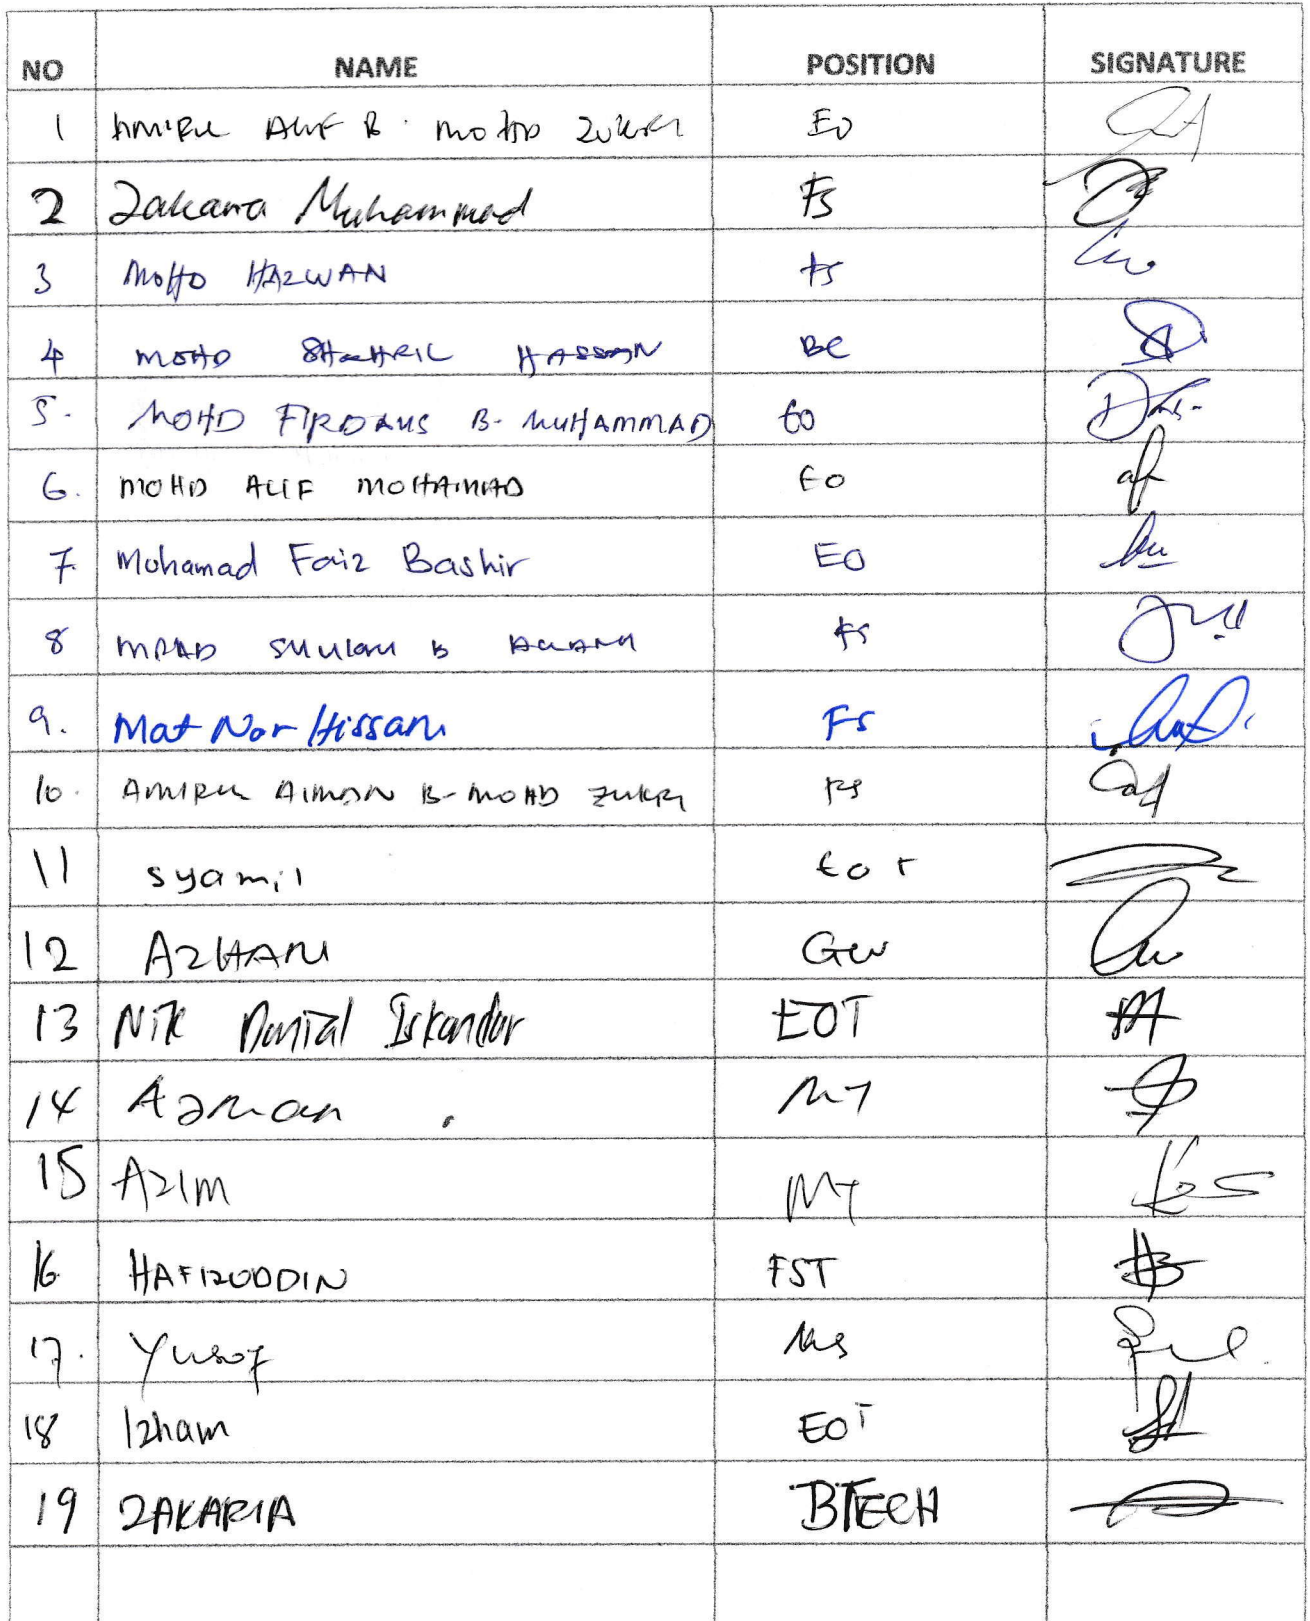 NO NAME POSITION SIGNATURE
1 AMIRUL ALIF B. MOHD ZUKRI EO
2 Zakaria Muhammad FS
3 MOHD HAZWAN FS
4 MOHD SHAHRIL HASSAN BC
5. MOHD FIRDAUS B. MUHAMMAD EO
6. MOHD ALIF MOHAMAD EO
7. Mohamad Faiz Bashir EO
8 B FS
9. Mat Nor Hissam FS
10. AMIRUL AIMAN B. MOHD ZUKRI FS
11 syamil EOT
12 AZHAM GW
13 Nik Danial Iskandar EOT
14 Azman MT
15 AZIM MT
16 HAFIZUDDIN FST
17. Yusof
18 Izham EOT
19 ZAKARIA BTECH